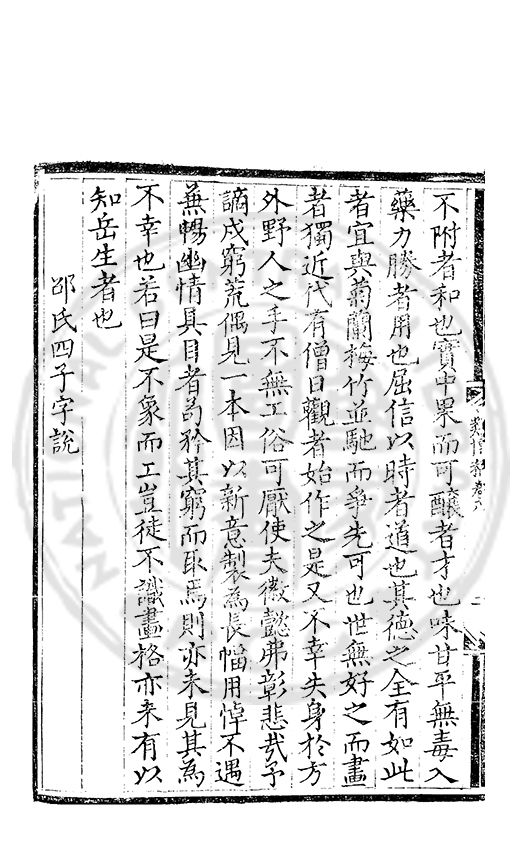 不附者和也實中果而可釀者才也味甘平無毒入
藥力勝者用也屈信以時者道也其德之全有如此
者宜與菊蘭梅竹並馳而爭先可也世無好之而畫
者獨近代有僧日觀者始作之是又不幸失身於方
外野人之手不無工俗可厭使夫徽懿弗彰悲哉予
謫戍窮荒偶見一本因以新意製為長幅用悼不遇
蕪暢幽情具目者茍矜其窮而取焉則亦未見其為
不幸也若曰是不象而工豈徒不識畫格亦未有以
知岳生者也
邵氏四子字說